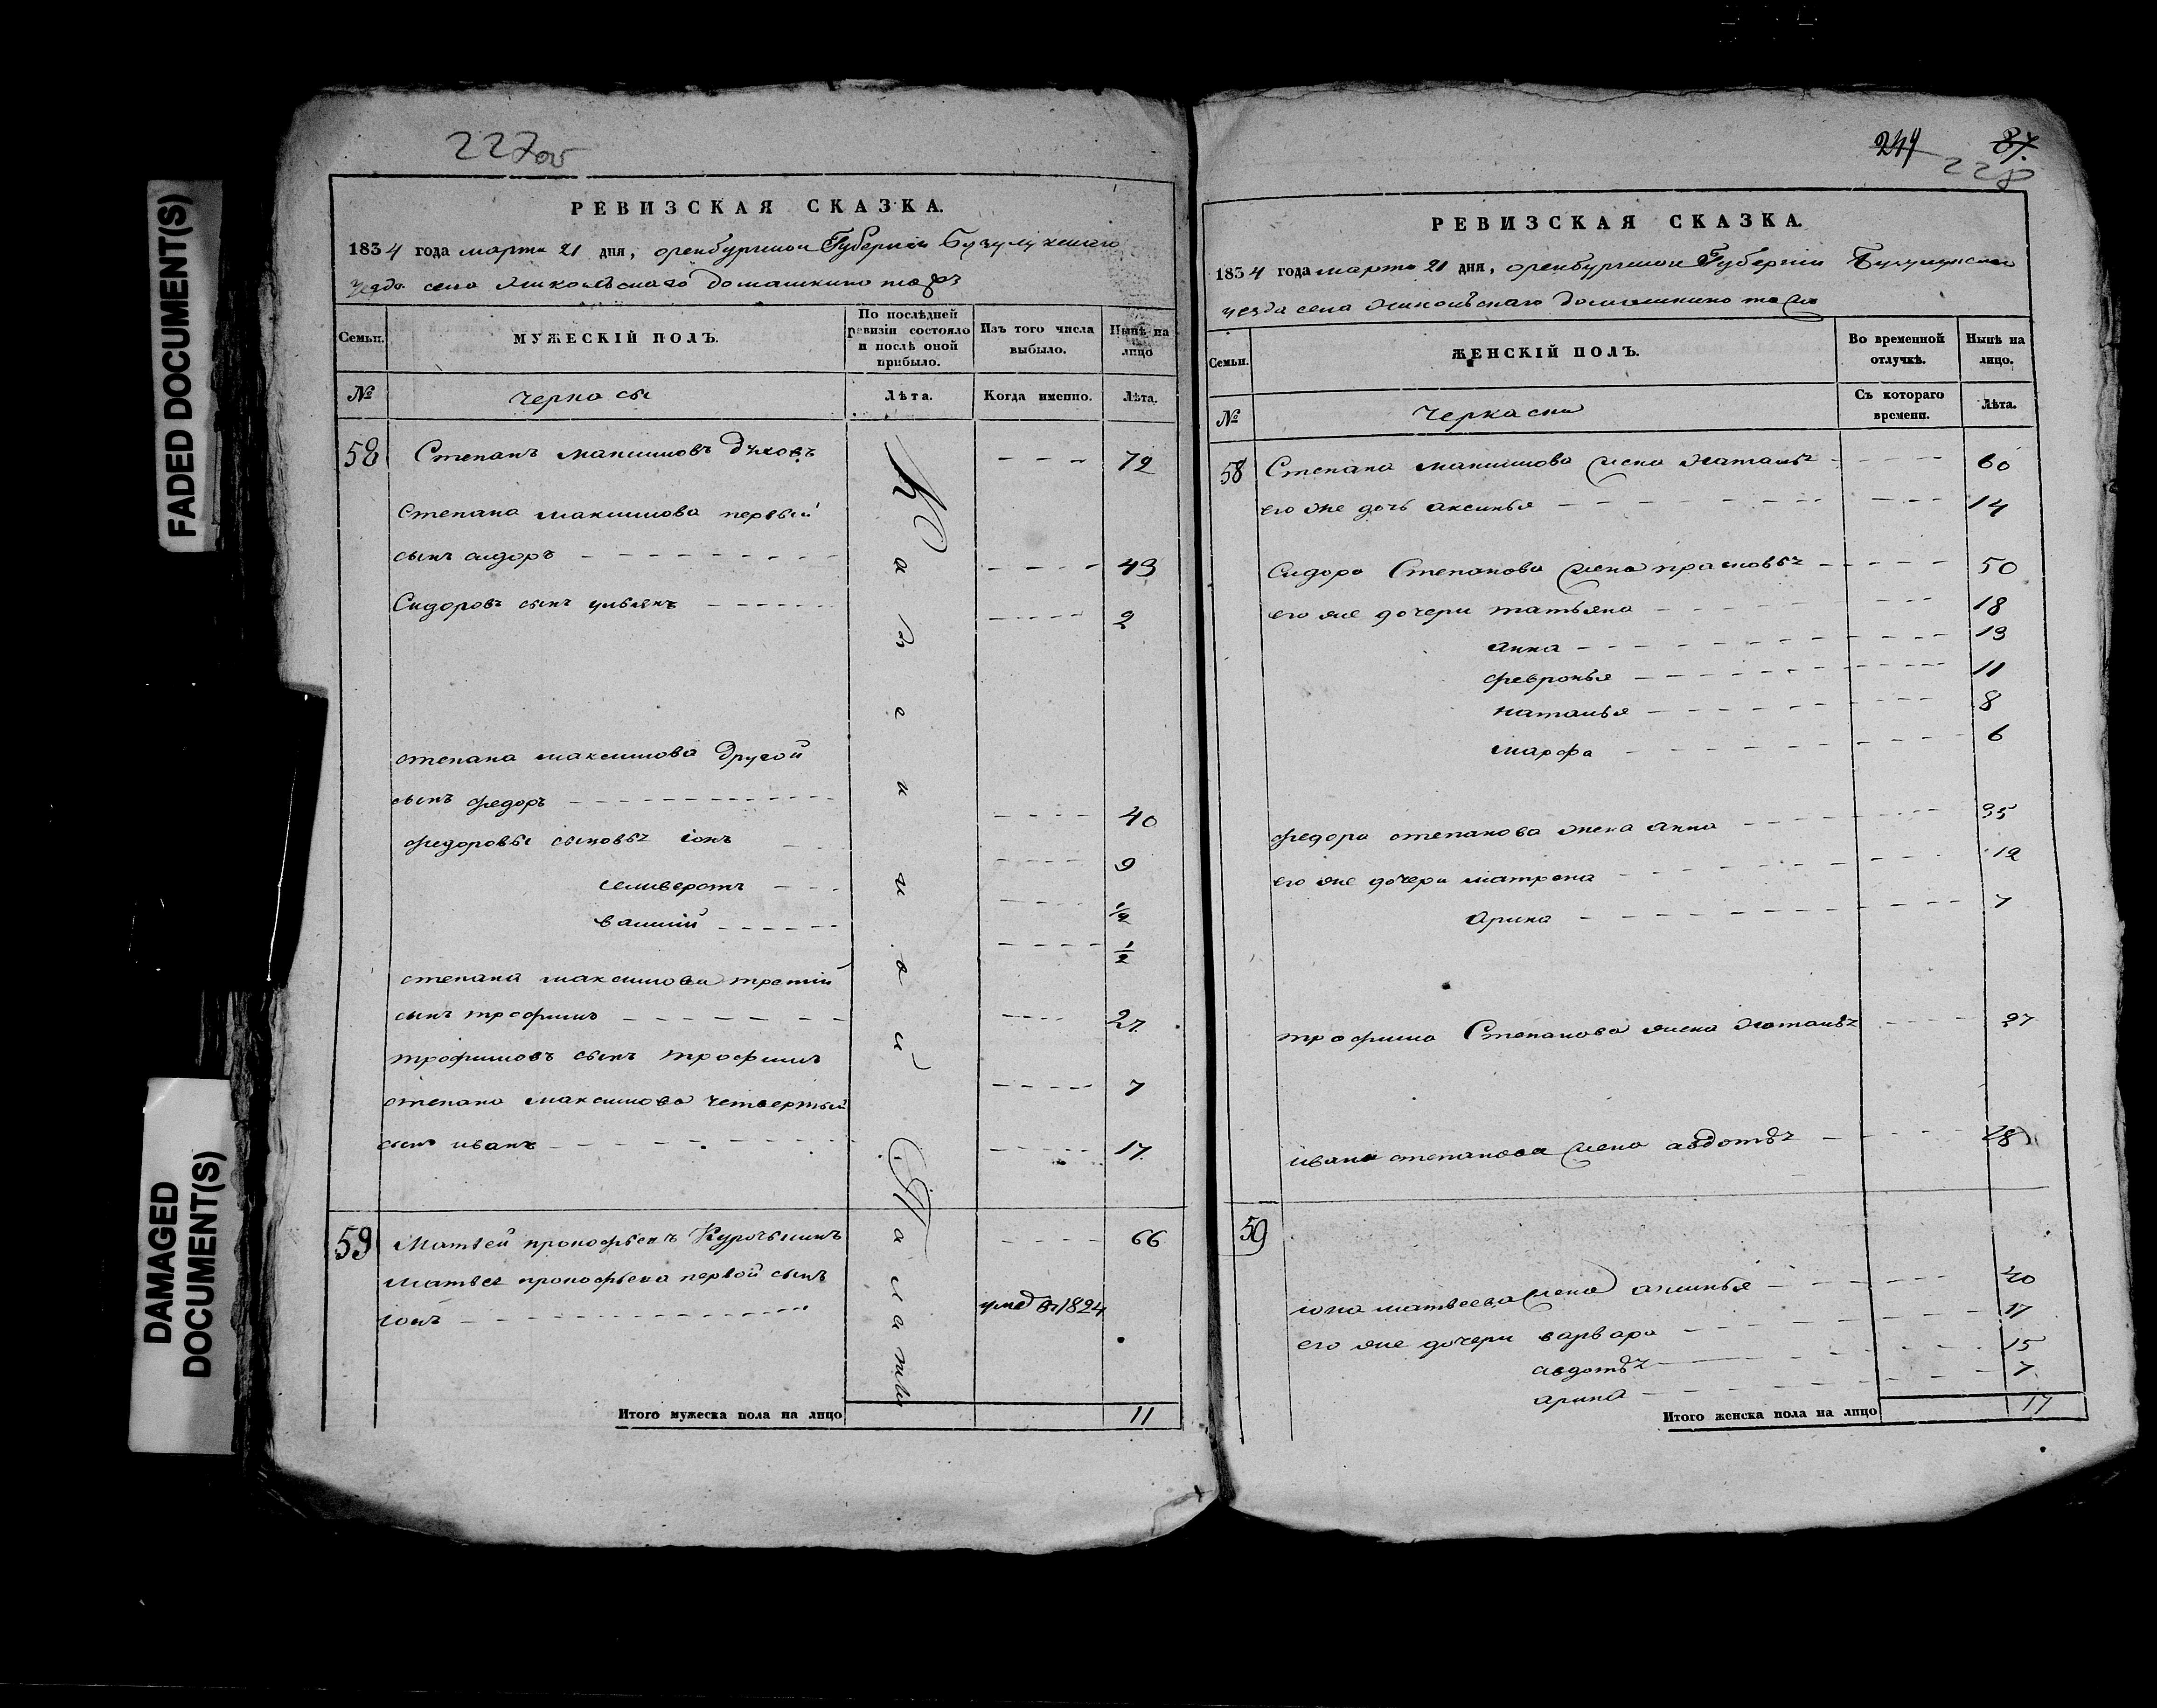 FADED DOCUMENT(S)
DAMAGED
DOCUMENT(S)
227об
РЕВИЗСКАЯ СКАЗКА.
1834 года марта 21 дня, оренбургской Губернии Бузулукскаго
уезда села Никольскаго домашкино тожъ
Семьи.
МУЖЕСКІЙ ПОЛЪ.
По послѣдней ревизіи состояло и послѣ оной прибыло.
Изъ того числа выбыло.
Нынѣ на лицо
№
черкасы
Лѣта.
Когда именно.
Лѣта.
58 Степанъ максимовъ Духовъ - - - 72
Степана максимова первый
сынъ сидоръ - - - - 43
Сидоровъ сынъ ульянъ - - - - 2
степана максимова другой
сынъ федоръ - - - - 40
федоровы сыновья іонъ - - - - 9
селиверстъ - - - - 1/2
василий - - - - 1/2
степана максимова третий
сынъ трофимъ - - - - 27.
трофимовъ сынъ трофимъ - - - - 7
степана максимова четвертый
сынъ иванъ - - - - 17.
59 Матвей прокофьевъ - - - - 66
Матвея прокофьева первой сынъ
іонъ - - - - 1824
Итого мужеска пола на лицо 11
Казенная
Палаты
244 87.
228
РЕВИЗСКАЯ СКАЗКА.
1834 года марта 21 дня, оренбургской Губернии Бузулукскаго
уезда села Никольскаго домашкино тожъ
Семьи.
ЖЕНСКІЙ ПОЛЪ.
Во временной отлучкѣ.
Нынѣ на лицо.
№
черкаски
Съ котораго времени.
Лѣта.
58 Степана максимова жена Наталья - - - - 60
его же дочь аксинья - - - - 14
Сидора Степанова жена прасковья - - - - 50
его же дочери татьяна - - - - 18
анна - - - - 13
февронья - - - - 11
наталья - - - - 8
марфа - - - - 6
федора степанова жена анна - - - - 35
его же дочери матрена - - - - 12
арина - - - - 7
трофима Степанова жена Наталья - - - - 27
ивана степанова жена авдотья - - - - 18
59
іона матвеева жена аксинья - - - - 40
его же дочери варвара - - - - 17
авдотья - - - - 15
арина - - - - 7
Итого женска пола на лицо 17